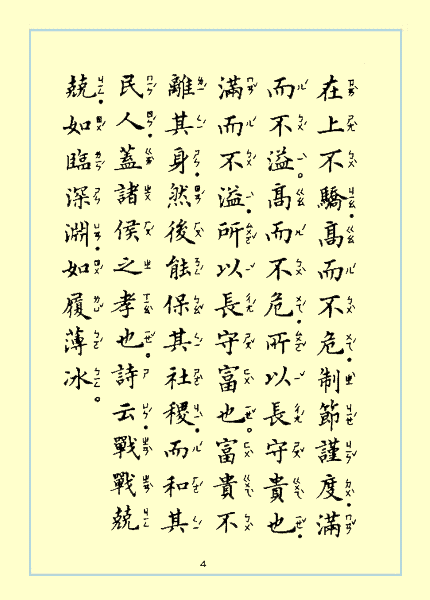 在上不驕，高而不危，制節謹度，滿
而不溢。高而不危，所以長守貴也，
滿而不溢，所以長守富也。富貴不
離其身，然後能保其社稷，而和其
民人，蓋諸侯之孝也。詩云，戰戰兢
兢，如臨深淵，如履薄冰。
4